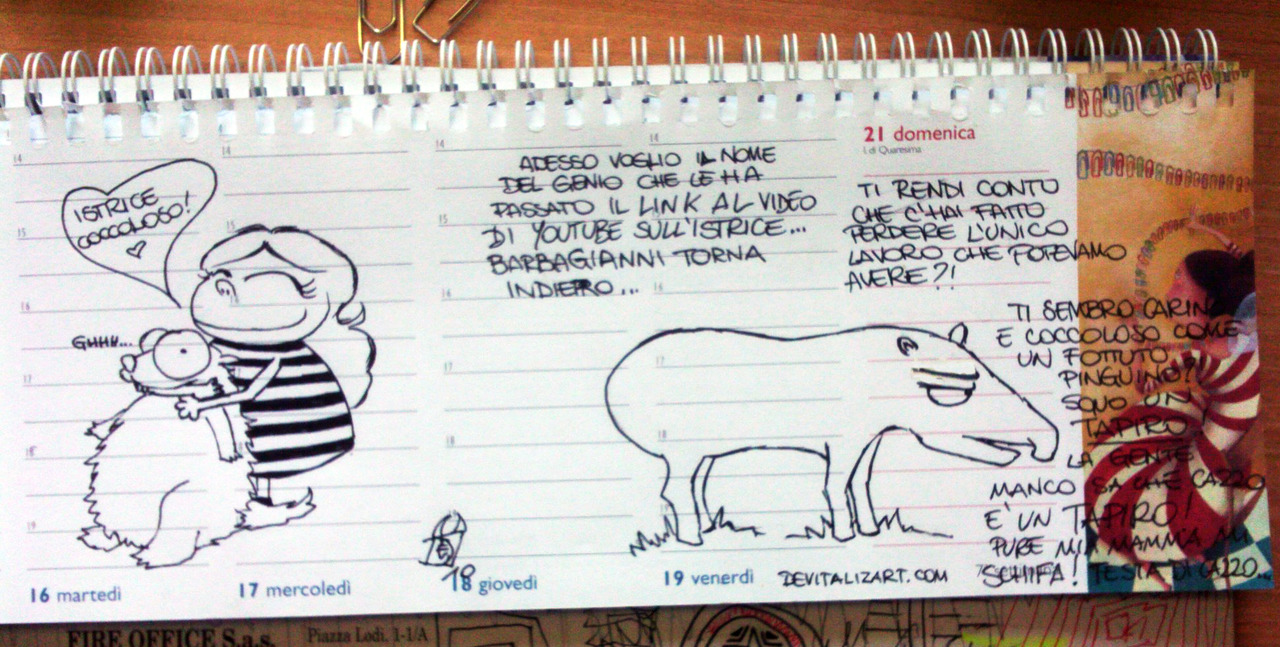 21 domenica
I. di Quaresima
ISTRICE
COCCOLOSO!
GHHH...
ADESSO VOGLIO IL NOME
DEL GENIO CHE LE HA
PASSATO IL LINK AL VIDEO
DI YOUTUBE SULL'ISTRICE...
BARBAGIANNI TORNA
INDIETRO...
TI RENDI CONTO
CHE C'HAI FATTO
PERDERE L'UNICO
LAVORO CHE POTEVAMO
AVERE?!
TI SEMBRO CARINO
E COCCOLOSO COME
UN FOTTUTO
PINGUINO?
SONO UN
TAPIRO
LA GENTE
MANCO SA CHE CAZZO
E' UN TAPIRO!
PURE MIA MAMMA MI
SCHIFA! TESTA DI CAZZO...
14
14
14
14
15
15
15
16
16
16
17
17
17
18
18
18
19
16 martedì
17 mercoledì
18 giovedì
19 venerdì
DEVITALIZART.COM
FIRE OFFICE S.a.s.
Piazza Lodi, 1-1/A